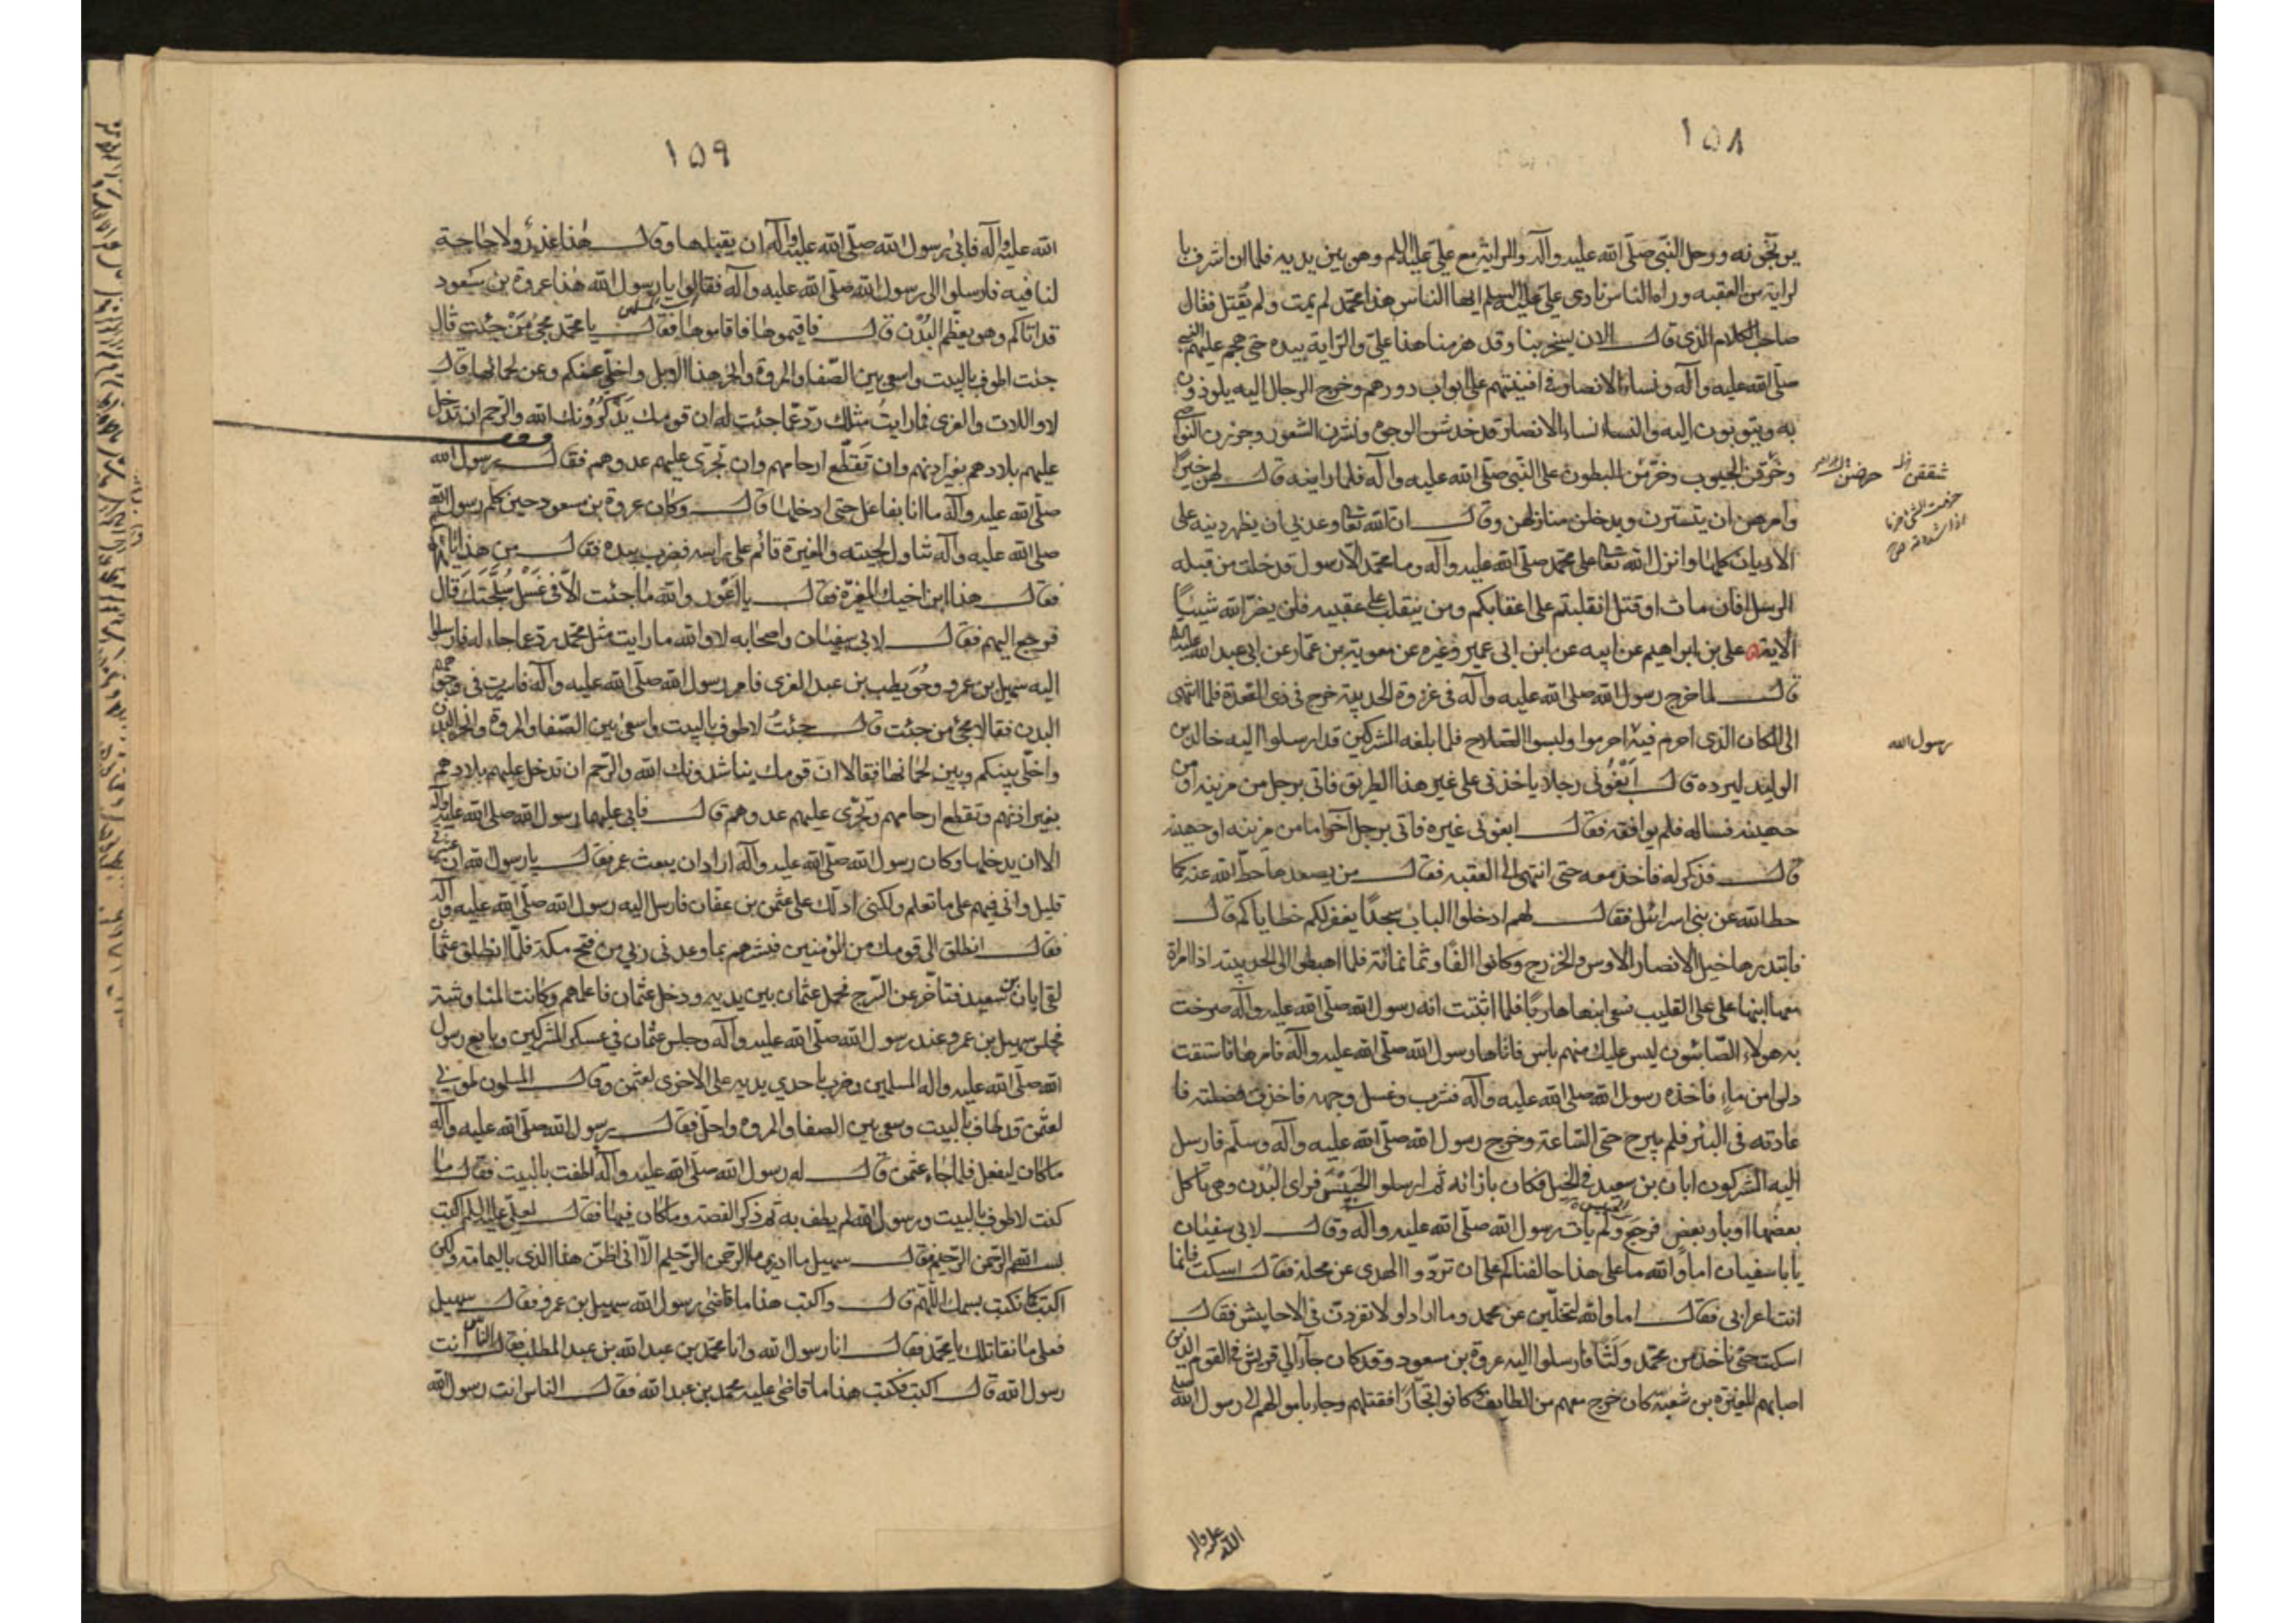 ١٥٨
يرتجونه ورحل النبي صلى الله عليه وآله والراية مع علي عليه السلم وهو بين يديه فلما ان اشرف با
لراية من العقبه وراه الناس نادى علي عليه السلم ايها الناس هذا محمد لم يمت ولم يقتل فقال
صاحب الكلام الذي قال الان يسخر بنا وقد هزمنا هذا علي والراية بيده حتى هجم عليهم النبي
صلى الله عليه وآله ونساء الانصار في افنيتهم على ابواب دورهم وخرج الرجال اليه يلوذون
به ويتوبون اليه والنساء نساء الانصار قد خدشن الوجوه ونشرن الشعور وجززن النواصي
وخرقن الجيوب وخرمن البطون على النبي صلى الله عليه وآله فلما راينه قال لهن خيرًا
وامرهن ان يتسترن ويدخلن منازلهن وقال ان الله تعا وعدني ان يظهر دينه على
الاديان كلها وانزل الله تعا على محمد صلى الله عليه وآله وما محمد الا رسول قد خلت من قبله
الرسل افان مات او قتل انقلبتم على اعقابكم ومن ينقلب على عقبيه فلن يضر الله شيئًا
الاية علي بن ابراهيم عن ابيه عن ابن ابي عمير وغيره عن معوية بن عمار عن ابي عبد الله عليه السلم
قال لما خرج رسول الله صلى الله عليه وآله في غزوة الحديبية خرج في ذي القعدة فلما انتهى
الى المكان الذي احرم فيه احرموا ولبسوا السلاح فلما بلغه المشركين قد ارسلوا اليه خالد بن
الوليد ليرده قال ابغوني رجلا ياخذني على غير هذا الطريق فاتي برجل من مزينه او من
جهينه فساله فلم يوافقه فقال ابغوني غيره فاتي برجل آخر اما من مزينه او جهينه
قال فذكر له فاخذ معه حتى انتهى الى العقبه فقال من يصعدها حط الله عنه كما
حط الله عن بني اسرائل فقال لهم ادخلوا الباب سجدًا يغفر لكم خطاياكم قال
فابتدرها خيل الانصار الاوس والخزرج وكانوا الفًا وثمانمائة فلما اهبطوا الى الحديبيه اذا امراة
معها ابنها على القليب فسعى ابنها هاربًا فلما اثبتت انه رسول الله صلى الله عليه وآله صرخت
به هولاء الصابئون ليس عليك منهم باس فاتاها رسول الله صلى الله عليه وآله فامرها فاستقت
دلوا من ماءٍ فاخذه رسول الله صلى الله عليه وآله فشرب وغسل وجهه فاخذت فضلته فا
عادته في البئر فلم يبرح حتى الساعة وخرج رسول الله صلى الله عليه وآله وسلم فارسل
اليه المشركون ابان بن سعيد في الخيل فكان بازائه ثم ارسلوا الحبيش فراى البدن وهي تاكل
بعضها اوبار بعض فرجع ولم يأت رسول الله صلى الله عليه وآله وقال لابي سفيان
يابا سفيان اما والله ما على هذا حالفناكم على ان تردوا الهدى عن محله فقال اسكت فانما
انت اعرابي فقال اما والله لتخلين عن محمد وما اراد او لانفردن في الاحابيش فقال
اسكت حتى ناخذ من محمد ولثا فارسلوا اليه عروة بن مسعود وقد كان جاء الى قريش في القوم الذين
اصابهم المغيره بن شعبه كان خرج معهم من الطايف وكانوا تجارًا فقتلهم وجاء باموالهم الى رسول الله صلى
شققن
رسول الله
الله عليه واله
١٥٩
الله عليه وآله فابى رسول الله صلى الله عليه وآله ان يقبلها وقال هذا غدر ولا حاجة
لنا فيه فارسلوا الى رسول الله صلى الله عليه وآله فقالوا يا رسول الله هذا عروة بن مسعود
قد اتاكم وهو يعظم البدن قال فاقيموها فاقاموها فقال يا محمد مجئ من جئت قال
جئت اطوف بالبيت واسعى بين الصفا والمروة وانحر هذا الابل واخلي عنكم وعن لحمانها قال
لا واللات والعزى فما رايت مثلك رد عما جئت له ان قومك يذكرونك الله والرحم ان تدخل
عليهم بلادهم بغير اذنهم وان تقطع ارحامهم وان تجرى عليهم عدوهم فقال رسول الله
صلى الله عليه وآله ما انا بفاعل حتى ادخلها قال وكان عروة بن مسعود حين كلم رسول الله
صلى الله عليه وآله تناول لحيته والمغيرة قائم على راسه فضرب بيده فقال من هذا يا محمد
فقال هذا ابن اخيك المغيرة فقال يا غدر والله ما جئت الا في غسل سلحتك قال
فرجع اليهم فقال لابي سفيان واصحابه لا والله ما رايت مثل محمد رد عما جاء له فارسلوا
اليه سهيل بن عمرو وحويطب بن عبد العزى فامر رسول الله صلى الله عليه وآله فاثيرت في وجوههم
البدن فقالا مجئ من جئت قال جئت لاطوف بالبيت واسعى بين الصفا والمروة وانحر البدن
واخلي بينكم وبين لحمانها فقالا ان قومك يناشدونك الله والرحم ان تدخل عليهم بلادهم
بغير اذنهم وتقطع ارحامهم وتجرى عليهم عدوهم قال فابى عليهما رسول الله صلى الله عليه وآله
الا ان يدخلها وكان رسول الله صلى الله عليه وآله اراد ان يبعث عمر فقال يا رسول الله ان عشيرتي
قليل واني فيهم على ما تعلم ولكني ادلك على عثمن بن عفان فارسل اليه رسول الله صلى الله عليه وآله
فقال انطلق الى قومك من المؤمنين فبشرهم بما وعدني ربي من فتح مكة فلما انطلق عثمان
لقى ابان بن سعيد فتاخر عن السرج فحمل عثمان بين يديه ودخل عثمان فاعلمهم وكانت المناوشة
فجلس سهيل بن عمرو عند رسول الله صلى الله عليه وآله وجلس عثمان في عسكر المشركين وبايع رسول
الله صلى الله عليه واله المسلمين وضرب باحدى يديه على الاخرى لعثمن وقال المسلمون طوبى
لعثمن قد طاف بالبيت وسعى بين الصفا والمروه واحل فقال رسول الله صلى الله عليه وآله
ما كان ليفعل فلما جاء عثمن قال له رسول الله صلى الله عليه وآله اطفت بالبيت فقال ما
كنت لاطوف بالبيت ورسول الله لم يطف به ثم ذكر القصة وما كان فيها فقال لعلي عليه السلم اكتب
بسم الله الرحمن الرحيم فقال سهيل ما ادري ما الرحمن الرحيم الا اني اظن هذا الذي باليمامة ولكن
اكتب كما نكتب بسمك اللهم قال واكتب هذا ما قاضى رسول الله سهيل بن عمرو فقال سهيل
فعلى ما نقاتلك يا محمد فقال انا رسول الله وانا محمد بن عبد الله بن عبد المطلب فقال الناس انت
رسول الله قال اكتب فكتب هذا ما قاضى عليه محمد بن عبد الله فقال الناس انت رسول الله